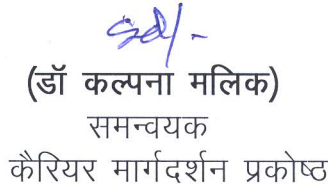 Sd/-
(डॉ कल्पना मलिक)
समन्वयक
कैरियर मार्गदर्शन प्रकोष्ठ